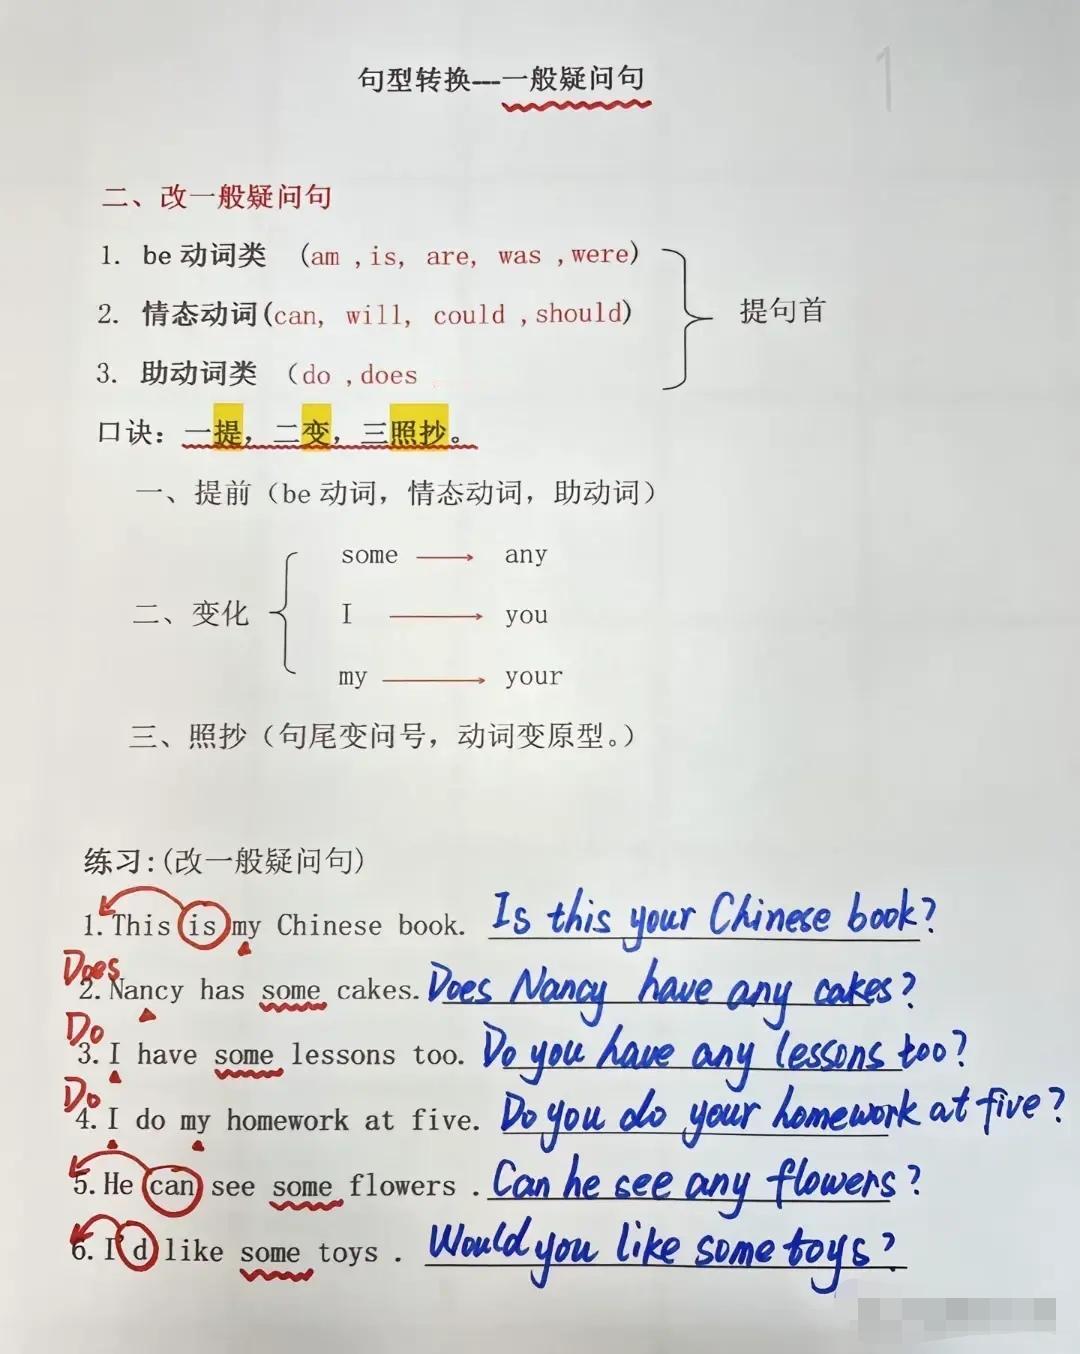 1
句型转换---一般疑问句
二、改一般疑问句
1. be 动词类 (am ,is, are, was ,were)
2. 情态动词(can, will, could ,should)
提句首
3. 助动词类 （do ,does
口诀：一提，二变，三照抄。
一、提前（be 动词，情态动词，助动词）
some any
二、变化 I you
my your
三、照抄（句尾变问号，动词变原型。）
练习:(改一般疑问句)
1.This is my Chinese book. Is this your Chinese book?
Does
2.Nancy has some cakes. Does Nancy have any cakes?
Do
3.I have some lessons too. Do you have any lessons too?
Do
4.I do my homework at five. Do you do your homework at five?
5.He can see some flowers . Can he see any flowers?
6.I'd like some toys . Would you like some toys?